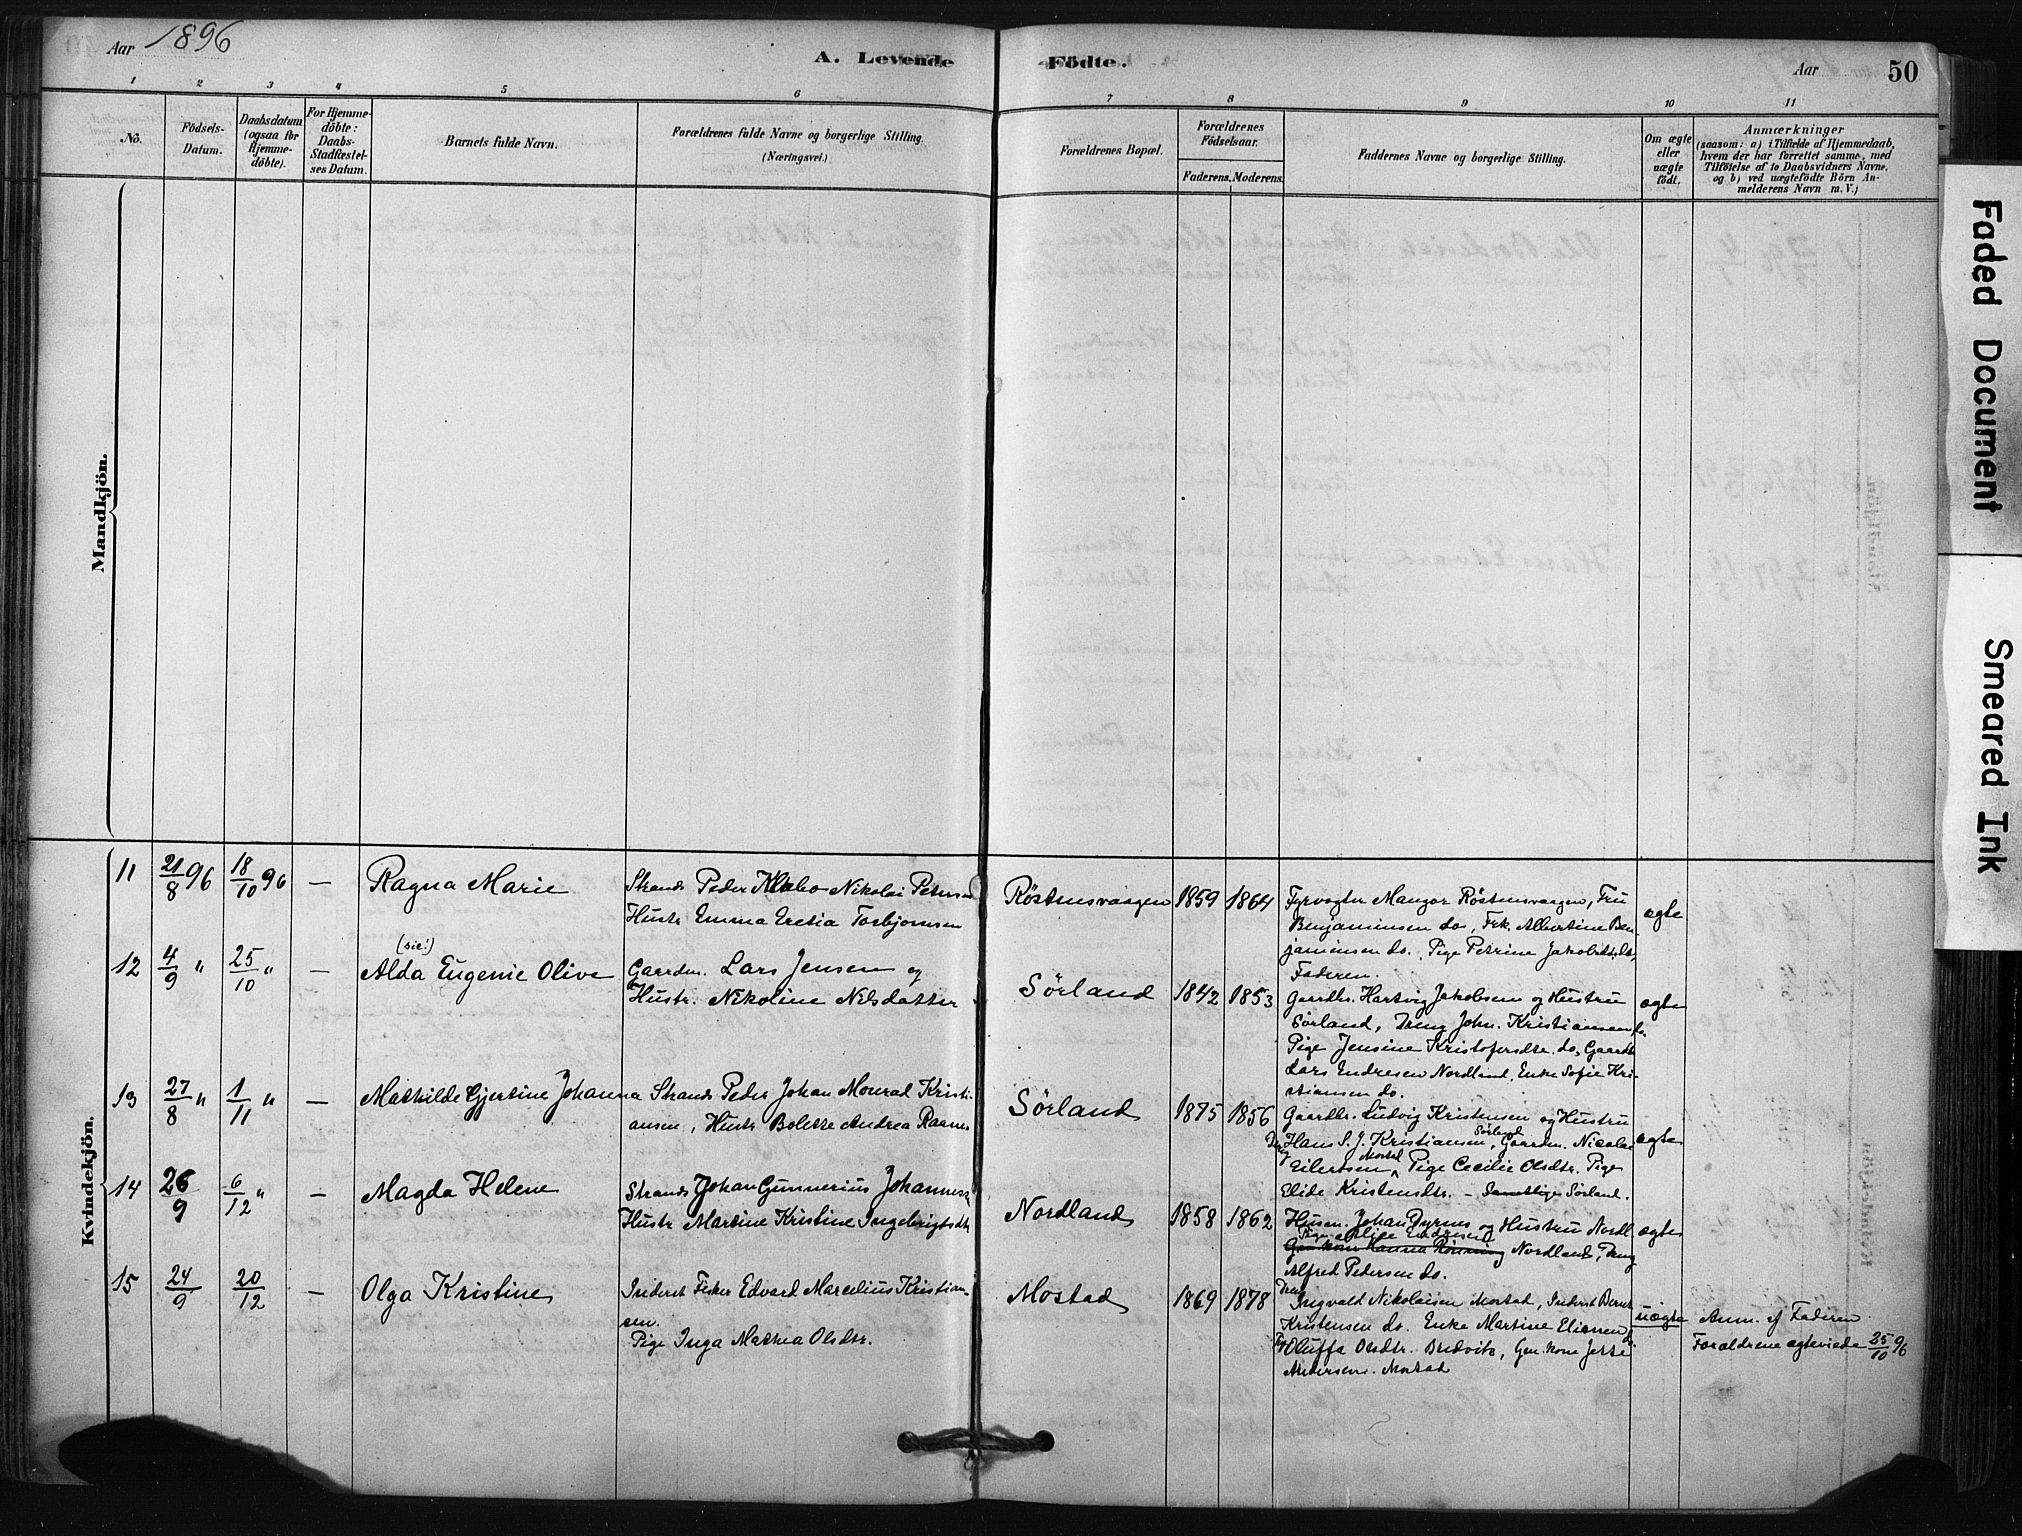 Aar 1896
A. Levende Födte.
Aar 50
1 2 3 4 5 6 7 8 9 10 11
No.
Födsels-
Datum.
Daabsdatum
(ogsaa for
Hjemme-
döbte).
For Hjemme-
döbte:
Daabs-
Stadfæstel-
ses Datum.
Barnets fulde Navn.
Forældrenes fulde Navne og borgerlige Stilling.
(Næringsvei.)
Forældrenes Bopæl.
Forældrenes
Födselsaar.
Faderens. Moderens.
Faddernes Navne og borgerlige Stilling.
Om ægte
eller
uægte
födt.
Anmærkninger
(saasom: a) i Tilfælde af Hjemmedaab,
hvem der har forrettet samme, med
Tilföielse af to Daabsvidners Navne,
og b) ved uægtefödte Börn An-
melderens Navn m. V.)
Mandkjön.
Kvindekjön.
11 21/8 96 18/10 96 — Ragna Marie
Strands. Peder Nikolai Petersen
Hustr Emma Eretia Torbjornsen
Röstensvaagen 1859 1864
Fyrvogter Mangor Röstensvaagen, Fru
Benjaminsen do, Frk. Albertine Ben-
jaminsen do. Pige Petrine Jakobsdtr. do,
Faderen.
ægte
12 4/9 " 25/10 " — (sic!)
Alda Eugenie Olive
Gaardm. Lars Jensen og
Hustr. Nikoline Nilsdatter
Sörland 1842 1853
Gaardbr. Hartvig Jakobsen og Hustru
Sörland, Dreng John. Kristiansen do.
Pige Jensine Kristofersdtr. do, Gaardb
Lars Endresen Nordland, Enke Sofie Kri-
stiansen do.
ægte
13 27/8 " 1/11 " — Mathilde Gjertine Johanna
Strands Peder Johan Monrad Kristi-
ansen, Hustr Bolette Andrea Raanes
Sörland 1875 1856
Gaardbr. Ludvig Kristensen og Hustru
Dreng Hans S. J. Kristiansen, Sörland, Gaardm. Nicolai
Eilertsen Mostad, Pige Cecilie Olsdtr. Pige
Elide Kristensdtr. – Samtlige Sörland.
ægte
14 26/9 6/12 " — Magda Helene
Strands Johan Gunnerius Johannesen
Hustr Martine Kristine Ingebrigtsdtr
Nordland 1858 1862
Husm. Johan Dyrnes og Hustru Nordl.
Pige Elise Endresen
Gaardkone Hanna Rönning Nordland, Dreng
Alfred Pedersen do.
ægte
15 24/9 20/12 — Olga Kristine
Inderst Fisker Edvard Marcelius Kristian-
sen.
Pige Inga Mathea Olsdtr.
Mostad 1869 1878
Dreng Ingvald Nikolaisen Mostad, Inderst Bernt
Kristensen do. Enke Martine Eliasen do.
Pige Oluffa Olsdtr. Bredvik, Gm. kone Jette
Andersen. Mostad
uægte
Anm. af Faderen.
Forældrene ægteviede 25/10 96
Faded Document
Smeared Ink